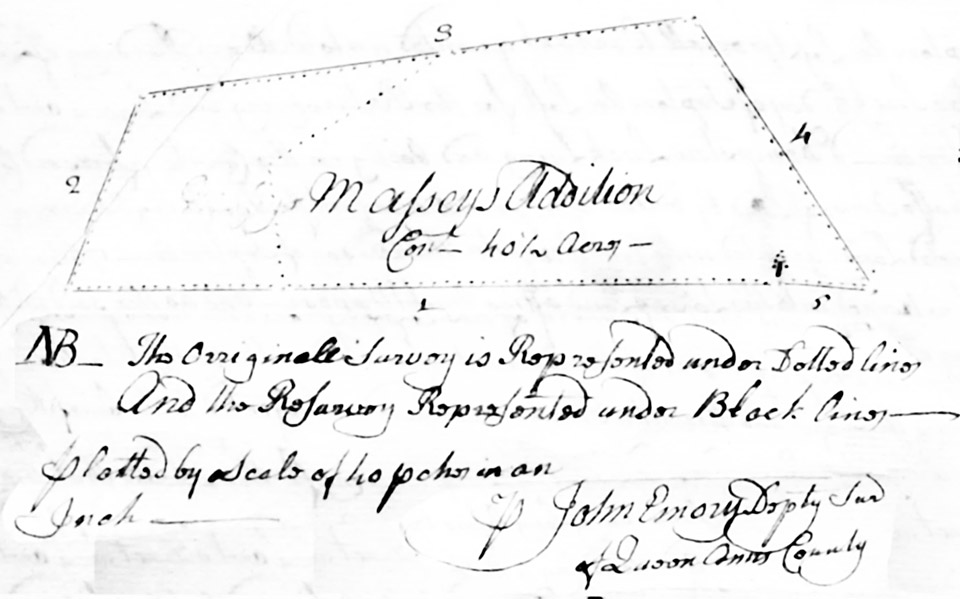 3
4
2
Masseys Addition
Cont 40½ Acres —
1
5
NB — The Originall Survey is Represented under Dotted lines
And the Resurvey Represented under Black lines —
Plotted by a Scale of 40 pches in an
Inch —
P John Emory Depty Sur
of Queen Anns County